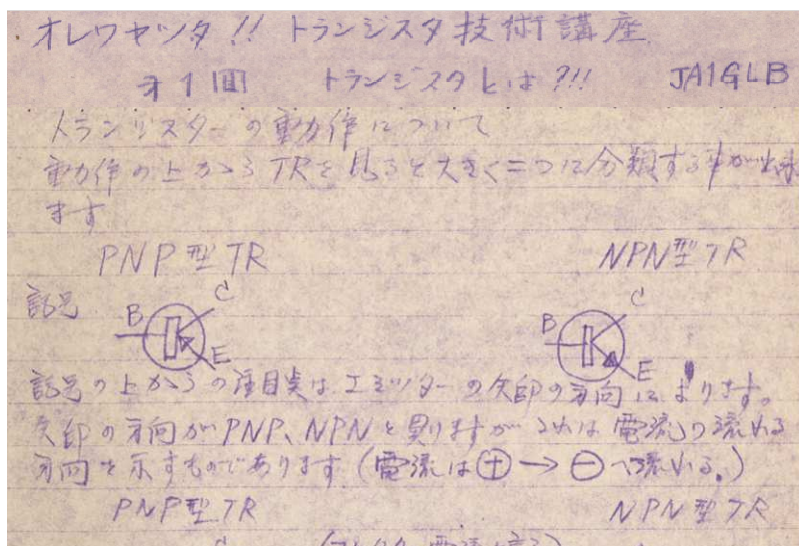 オレワヤツタ!! トランジスタ技術講座
才1回 トランジスタとは?!! JA1GLB
トランジスターの動作について
動作の上から TRを見ると大きく二つに分類する事が出来
ます
PNP型TR NPN型TR
記号 B C E B C E
記号の上からの注目点はエミッターの矢印の方向によります。
矢印の方向がPNP、NPNと異りますがこれは電流の流れる
方向を示すものであります(電流は⊕→⊖へ流れる。)
PNP型TR NPN型TR